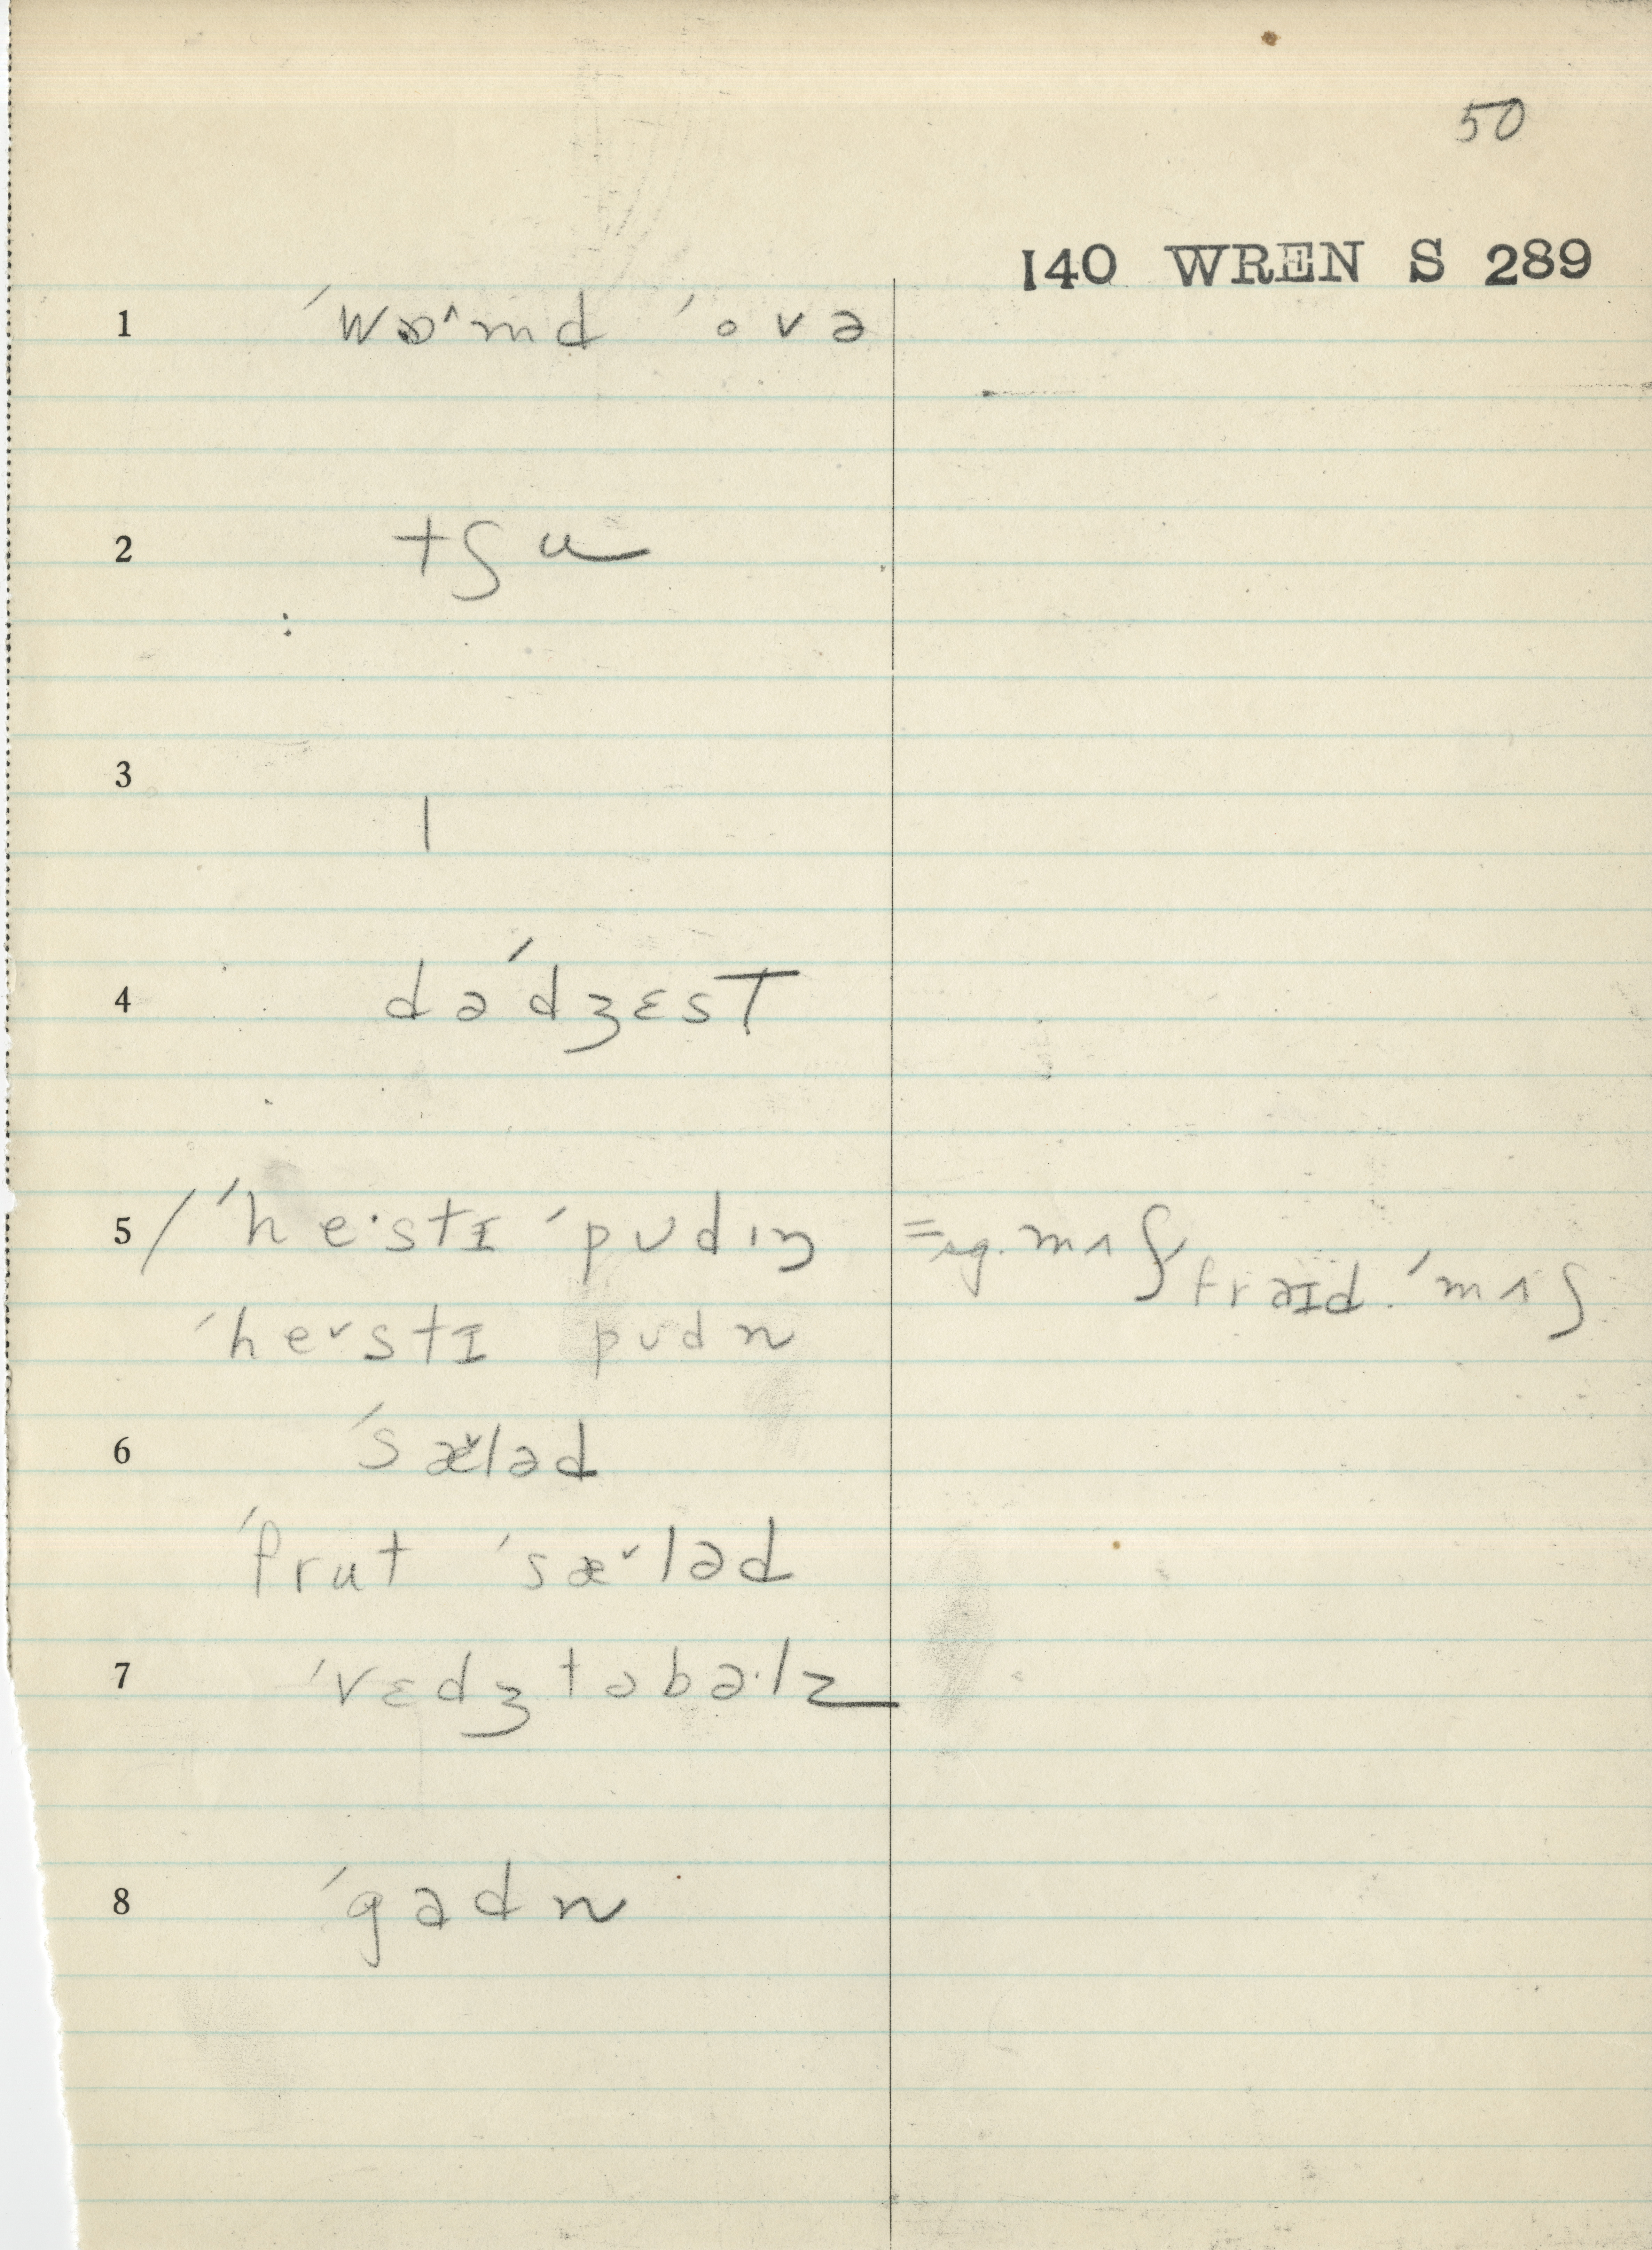 50
140 WREN S 289
1 ˈwɒ˄md ˈovə
2 tʃu
3 |
4 dəˈdʒɛsT
5 / ˈhe·stɪ ˈpʊdɪŋ = sg. mʌʃ fraɪd. ˈmʌʃ
ˈhe˅stɪ pʊdn
6 ˈsæ˅ləd
ˈfrut ˈsæ˅ləd
7 ˈvɛdʒtəbə·lz
8 ˈgadn